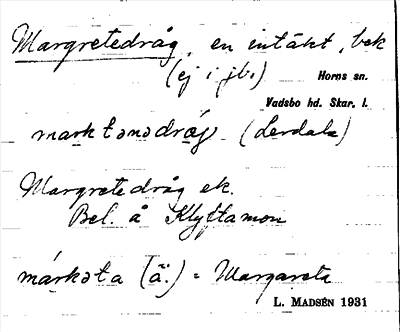 Margretedråg, en intäkt, bek
(ej i jb.)
Horns sn.
Vadsbo hd. Skar. l.
marktənədrǫg (Lerdala)
Margretedråg ek.
Bel. å Klyftamon
márkəta (ä.) = Margareta
L. MADSÉN 1931